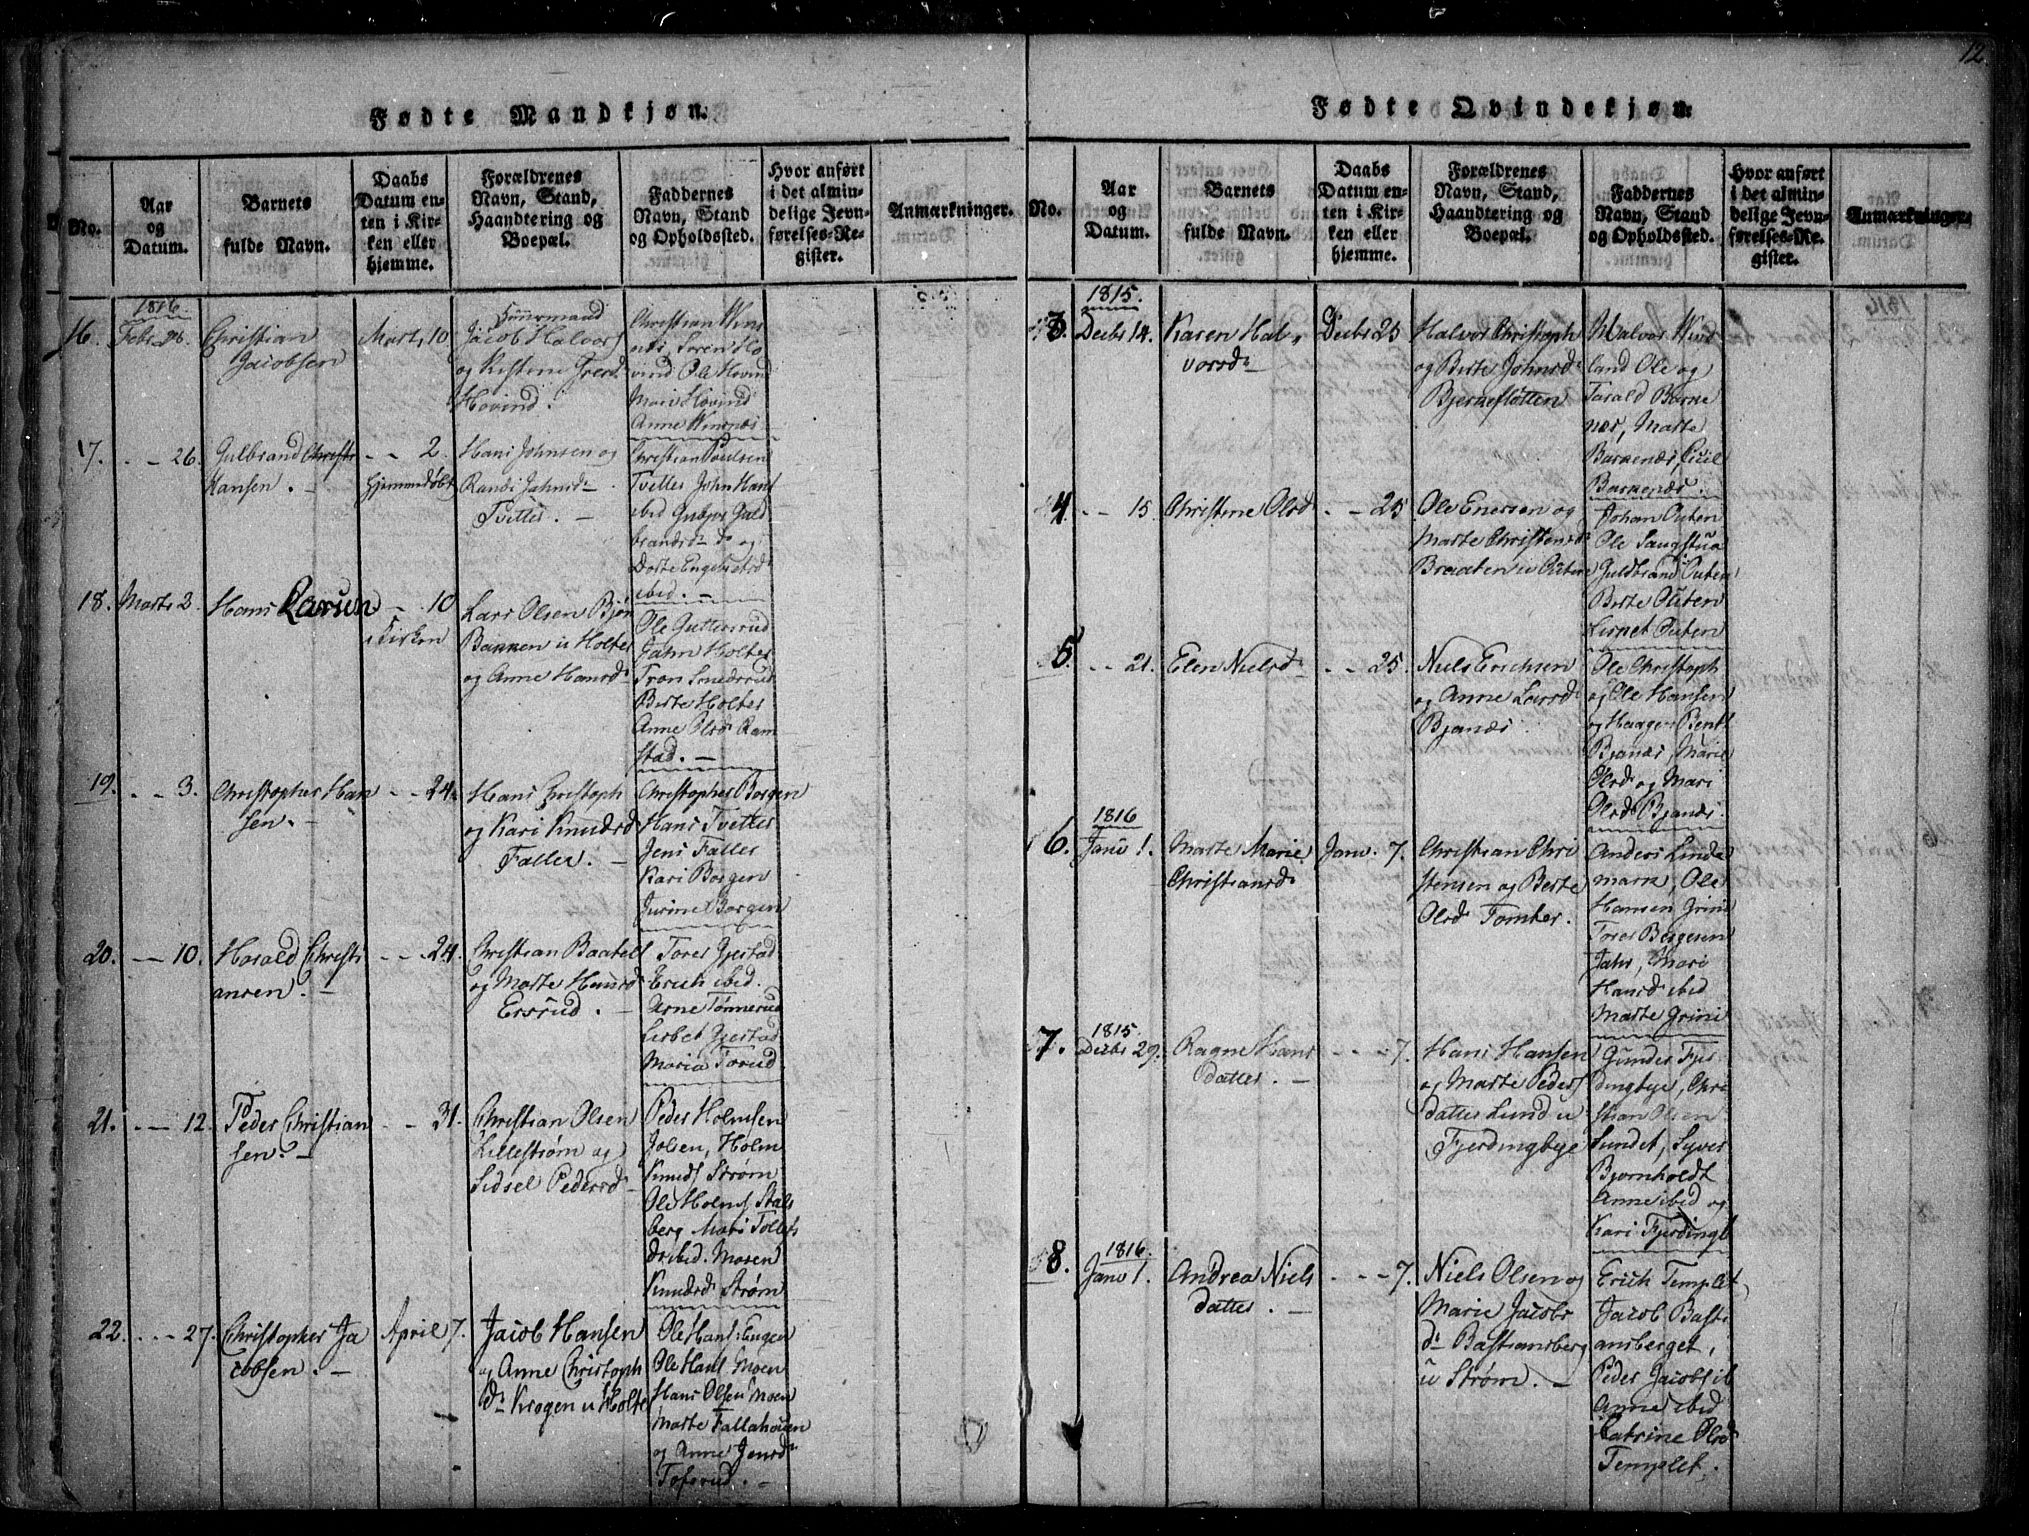 12
Fødte Mandkjøn.
No.
Aar
og
Datum.
Barnets
fulde Navn.
Daabs
Datum en-
ten i Kir-
ken eller
hjemme.
Forældrenes
Navn, Stand,
Haandtering og
Boepæl.
Faddernes
Navn, Stand
og Opholdssted.
Hvor anført
i det almin-
delige Jevn-
førelses-Re-
gister.
Anmærkninger.
16.
1816
Febr. 26.
Christian
Jacobsen
Mart. 10
Huusmand
Jacob Halvors
og Kistene
Hovind.
Christian
Søren Ho
vind Ole Hovind
Mari Hovind
Anne
17.
- - 26.
Gulbrand Christi
Hansen. -
- - 2.
Hjemmedøbt
Hans Johnsen og
Randi Jahnsd
Tvetter. -
Christian Poulsen
Tvetter John Hans
ibid Guld
brandsd do og
Dorte Engebretsd
ibid. -
18.
Marts 2.
Hans Larsen
- 10
i Kirken
Lars Olsen Bjør
Bakken u Holter
og Anne Hansd
Ole Gutterrud
Jahn Holter
Tron Smedsrud
Berte Holter
Anne Olsd Ram
stad. -
19.
- - 3.
Christopher Han
sen. -
- - 24.
Hans Christoph
og Kari Knudsd
Faller. -
Christopher Borgen
Hans Tvetter
Jens Faller
Kari Borgen
Jurine Borgen
20.
- - 10.
Harald Christi
ansen. -
- - 24.
Christian Baatels
og Marte Hansd
Ersrud. -
Tores Gjestad
Erich ibid.
Arne Tønnerud
Lisbet Gjestad
Maria Torud
21.
- - 12.
Peder Christian
sen. -
- - 31.
Christian Olsen
Lillestrøm og
Sidsel Pedersd
Peder Holmsen
Jolsen, Holm
Knuds Strøm
Ole Holms Stals
berg Mari Tollefs
dr ibid. Maren
Knudsd Strøm
22.
- - 27.
Christopher Ja
cobsen. -
April 7.
Jacob Hansen
og Anne Christoph
dr Krogen u Holte
Ole Hans: Engen
Ole Hans Moen
Hans Olsen Moen
Marte Fallahougen
og Anne Jensd
Toferud. -
Fødte Qvindekjøn.
No.
Aar
og
Datum.
Barnets
fulde Navn.
Daabs
Datum en-
ten i Kir-
ken eller
hjemme.
Forældrenes
Navn, Stand,
Haandtering og
Boepæl.
Faddernes
Navn, Stand
og Opholdssted.
Hvor anført
i det almin-
delige Jevn-
førelses-Re-
gister.
Anmærkninger.
3.
1815.
Decbr 14.
Karen Hal-
vorsd
Decbr 25
Halvor Christoph
og Berte Johnsd
Bjerkesløtten
Halvor
land Ole og
Tarald Barke
nes, Marte
Barkenæs, Cicil
Barkenæs.
4.
- - 15.
Christine Olsd
- - 25
Ole Enersen og
Marte Christensd
Braaten u Outen
Johan Outen
Ole Saugstua
Guldbrand Outen
Berte Outen
Lisbet Outen
5.
- - 21.
Elen Nielsd
- - 25.
Niels Erichsen
og Anne Larsd
Bjanæs
Ole Christoph
og Ole Hansen
og Haagen Bent
Bjanæs Marie
Olsd og Mari
Olsd Bjanæs.
6.
1816
Janu 1.
Marte Marie
Christiansd
Janu. 7.
Christian Chri
stensen og Berte
Olsd Tomter.
Anders Linde
mark, Ole
Hansen Grini
Tores Bergesen
Jahr, Mari
Hansd ibid
Marte Grini
7.
1815.
Decbr 29.
Ragne Hans
datter. -
- - - 7.
Hans Hansen
og Marte Peders
datter Lund u
Fjerdingbye
Gunder Fjer
dingbye, Chri
stian Olsen
Lundet, Syver
Bjornholdt
Anne ibid og
Kari Fjerdingb
8.
1816.
Janu 1.
Andrea Niels
datter. -
- - - 7.
Niels Olsen og
Marie Jacobs
dr Bastiansberg
u Strøm. -
Erich Templet
Jacob Basti
ansberget,
Peder Jacobs ib
Anne ibid
Catrine Olsd
Templet.